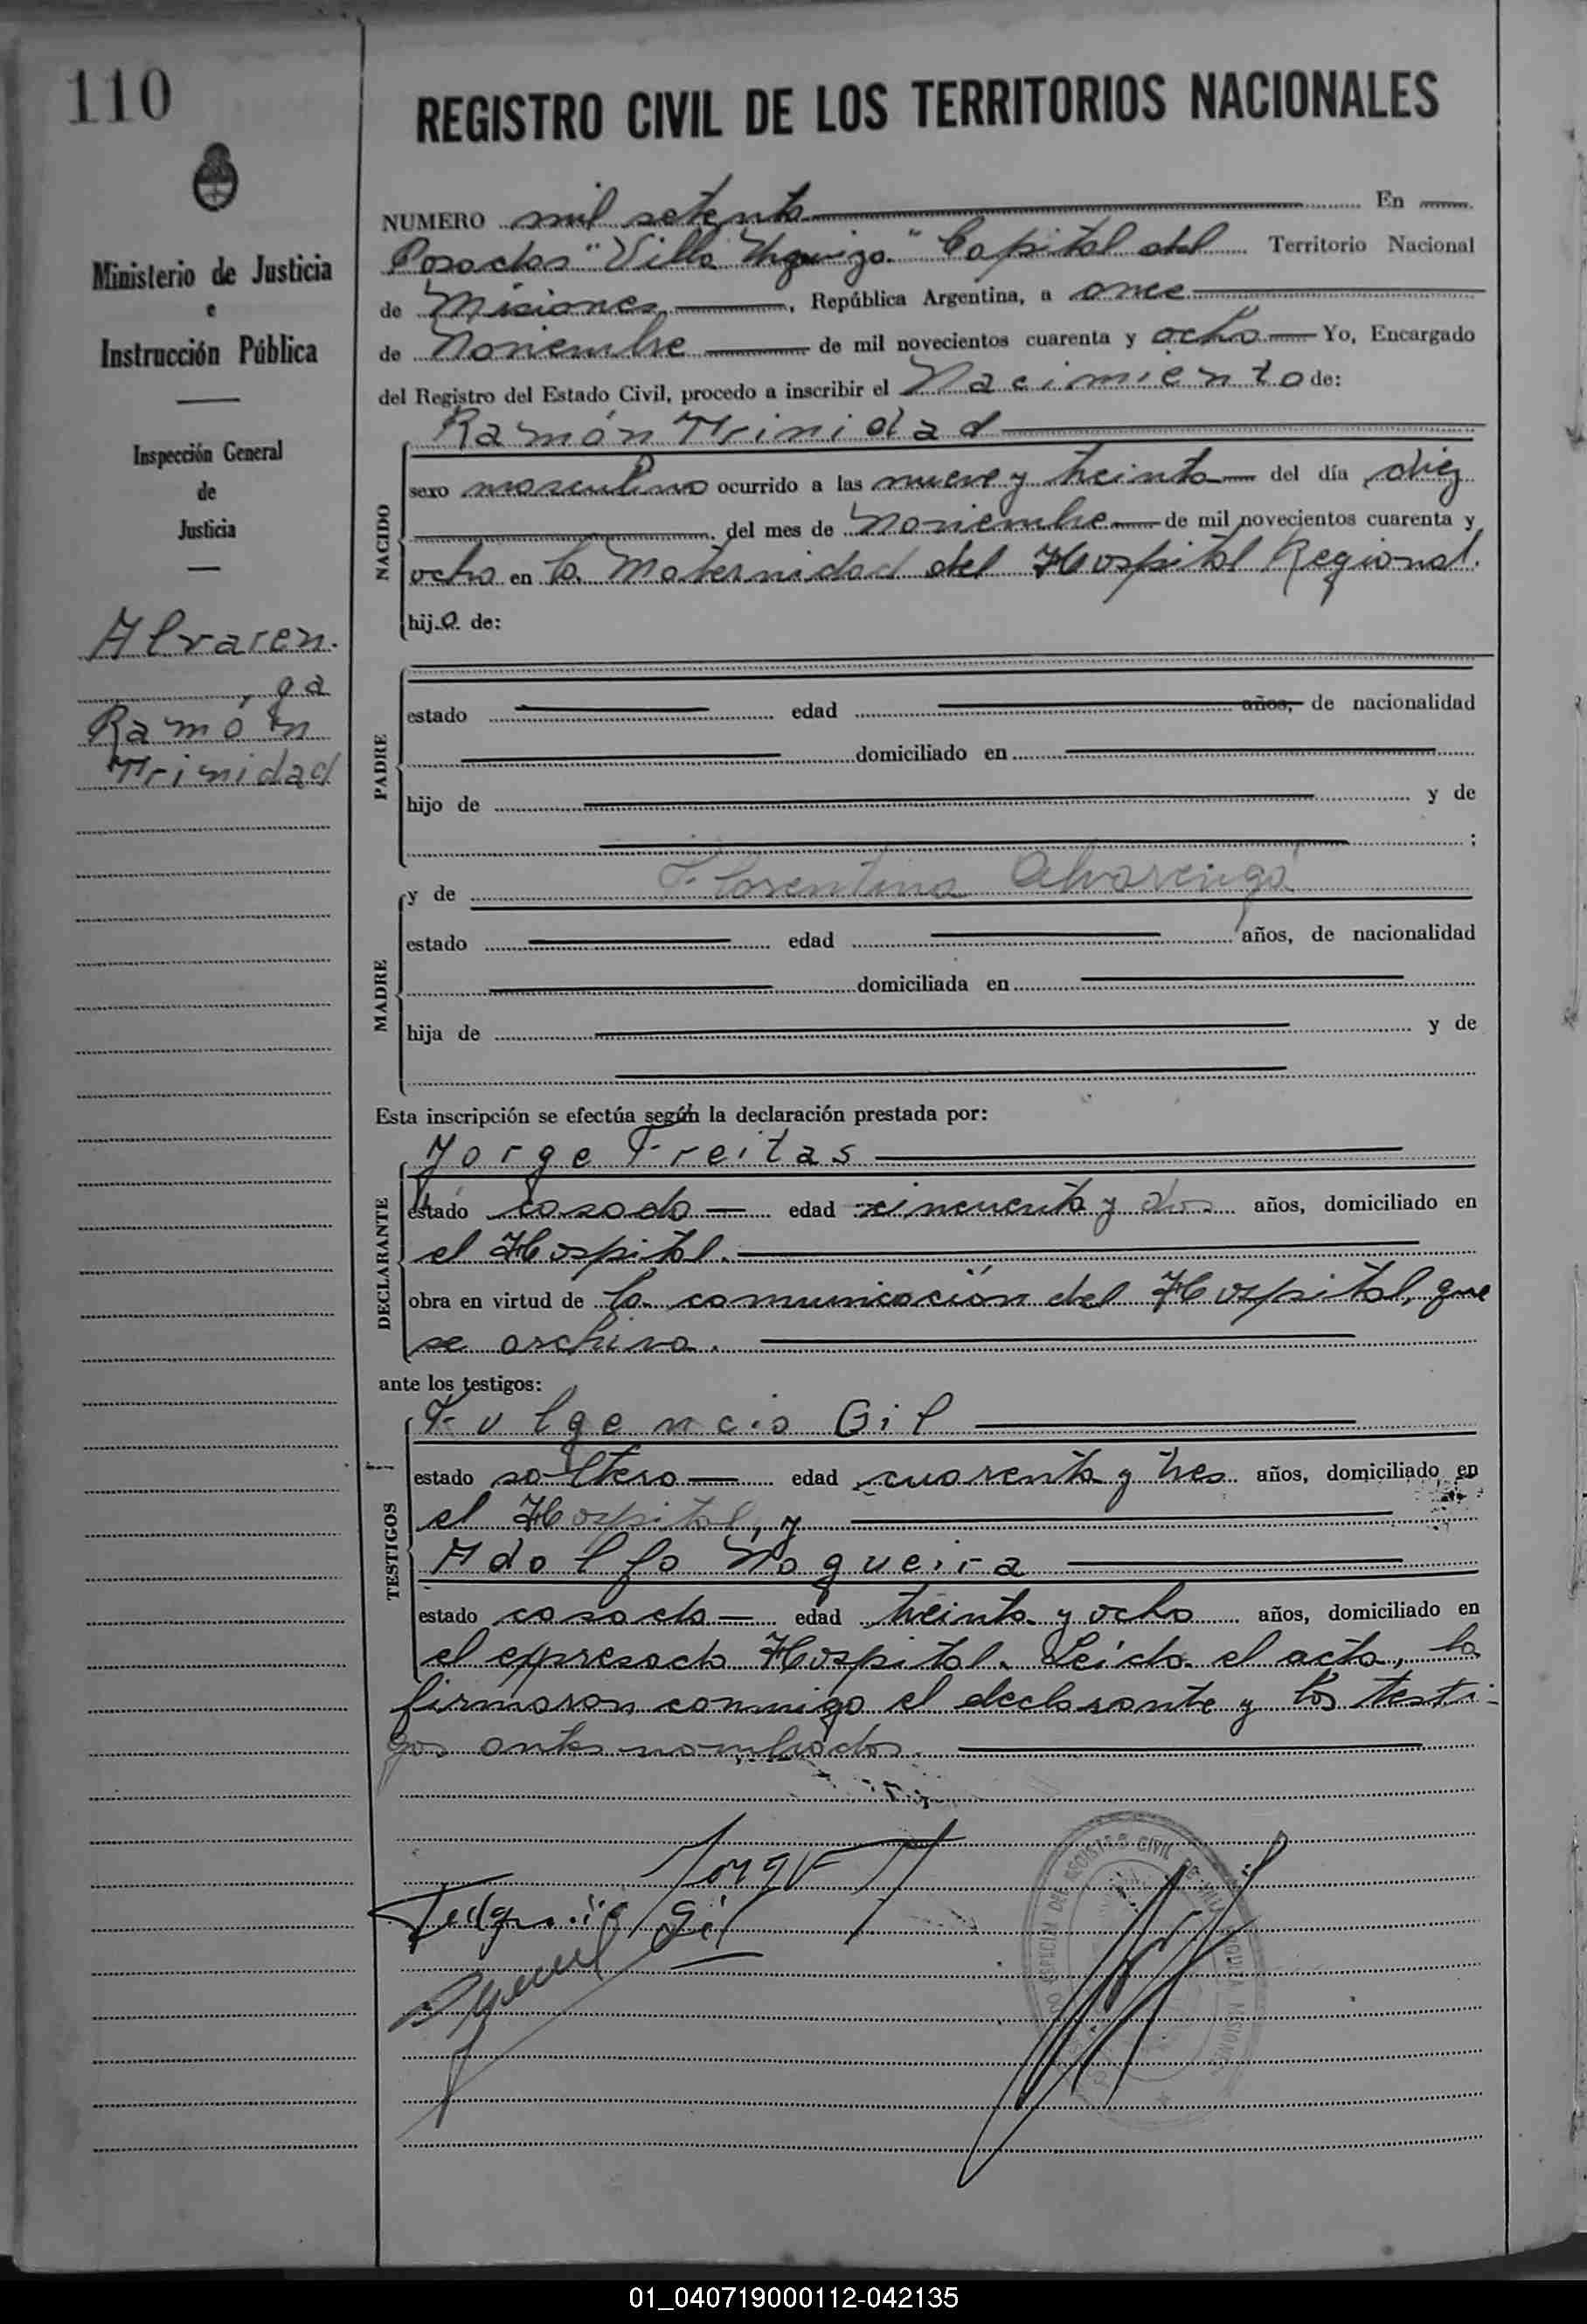 110
REGISTRO CIVIL DE LOS TERRITORIOS NACIONALES
Ministerio de Justicia
e
Instrucción Pública
Inspección General
de
Justicia
Alvaren-
ga
Ramón
Trinidad
NUMERO mil setenta En
Posadas "Villa Urquiza" Capital del Territorio Nacional
de Misiones, República Argentina, a once
de Noviembre de mil novecientos cuarenta y ocho Yo, Encargado
del Registro del Estado Civil, procedo a inscribir el Nacimiento de:
NACIDO
Ramón Trinidad
sexo masculino ocurrido a las nueve y treinta del día diez
del mes de Noviembre de mil novecientos cuarenta y
ocho en la Maternidad del Hospital Regional.
hijo de:
PADRE
estado edad años, de nacionalidad
domiciliado en
hijo de y de
;
MADRE
y de Florentina Alvarenga
estado edad años, de nacionalidad
domiciliada en
hija de y de
Esta inscripción se efectúa según la declaración prestada por:
DECLARANTE
Jorge Freitas
estado casado edad cincuenta y dos años, domiciliado en
el Hospital.
obra en virtud de la comunicación del Hospital, que
se archiva.
ante los testigos:
TESTIGOS
Fulgencio Gil
estado soltero edad cuarenta y tres años, domiciliado en
el Hospital, y
Adolfo Nogueira
estado casado edad treinta y ocho años, domiciliado en
el expresado Hospital. Leída el acta, la
firmaron conmigo el declarante y los testi-
gos antes nombrados.
Gil
REGISTRO CIVIL
MISIONES
01_040719000112-042135